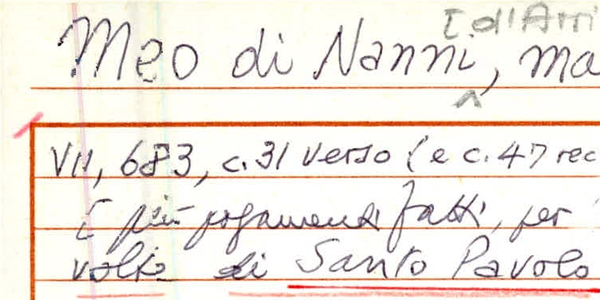 [d'Arri
Meo di Nanni, ma
VII, 683, c. 31 verso (e c. 47 rec
i più pagamenti fatti, per
volte di Santo Pavolo